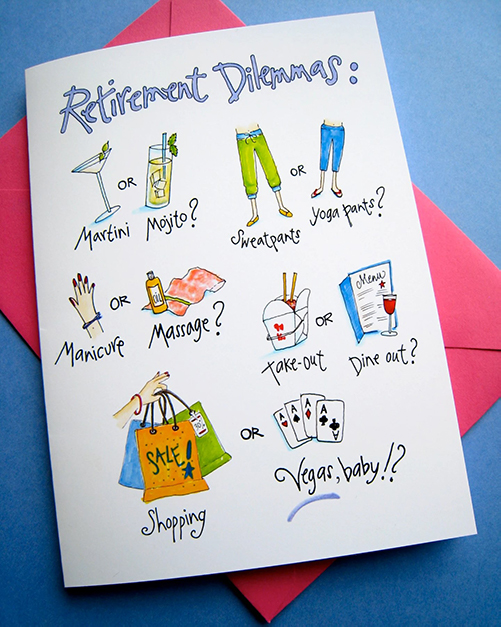 Retirement Dilemmas:
OR OR
Martini Mojito? Sweatpants Yoga pants?
OR OR
Menu
Manicure Massage? Take-out Dine out?
A A A A
SALE! OR
Shopping Vegas, baby!?